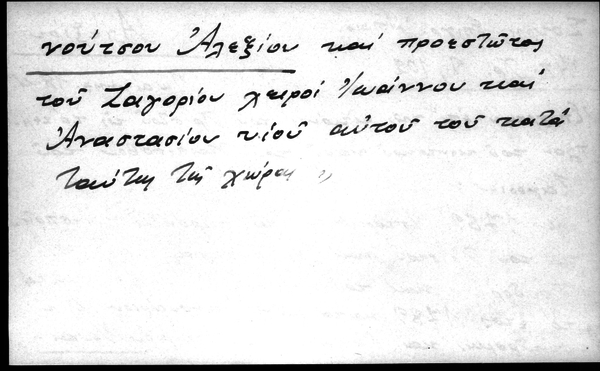 νούτσου Ἀλεξίου καί προεστῶτος
τοῦ Ζαγορίου χειρί Ἰωάννου καί
Ἀναστασίου υἱοῦ αὐτοῦ τοῦ κατά
ταύτης τῆς χώρας